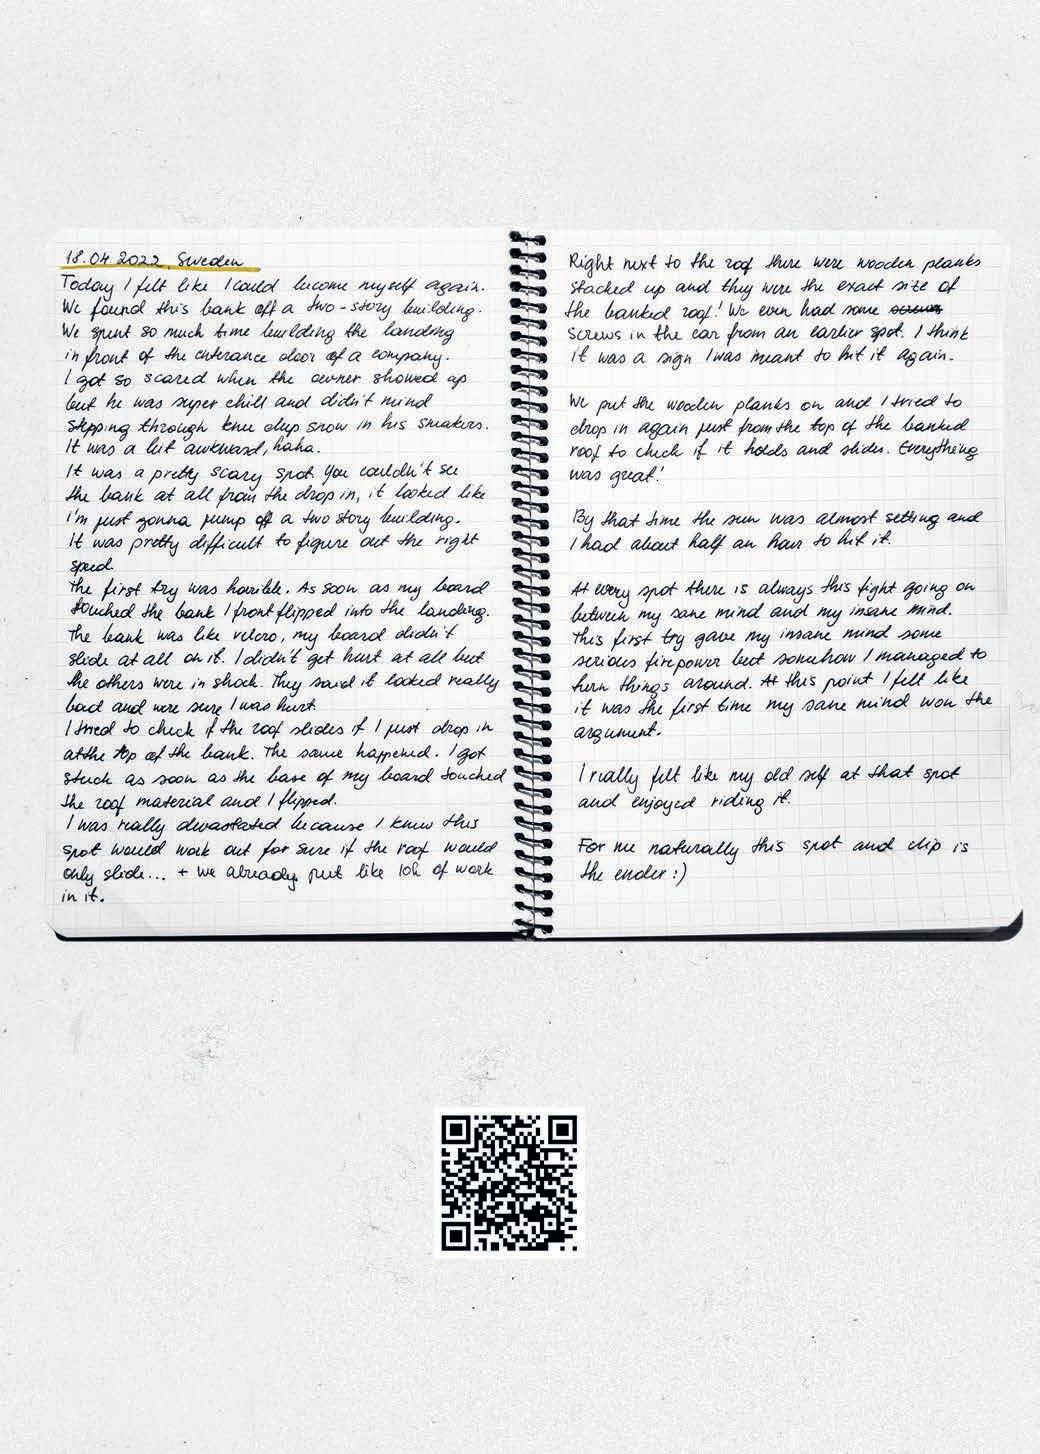 18.04 2022, Sweden
Today I felt like I could become myself again.
We found this bank off a two-story building.
We spent so much time building the landing
in front of the enterance door of a company.
I got so scared when the owner showed up
but he was super chill and didn't mind
stepping through knee deep snow in his sneakers.
It was a bit awkward, haha.
It was a pretty scary spot. You couldn't see
the bank at all from the drop in, it looked like
I'm just gonna jump off a two story building.
It was pretty difficult to figure out the right
speed.
The first try was horrible. As soon as my board
touched the bank I frontflipped into the landing.
The bank was like velcro, my board didn't
slide at all on it. I didn't get hurt at all but
the others were in shock. They said it looked really
bad and were sure I was hurt.
I tried to check if the roof slides if I just drop in
at the top of the bank. The same happened. I got
stuck as soon as the base of my board touched
the roof material and I flipped.
I was really devastated because I knew this
spot would work out for sure if the roof would
only slide... + we already put like 10h of work
in it.
Right next to the roof there were wooden planks
stacked up and they were the exact size of
the banked roof! We even had some screws
screws in the car from an earlier spot. I think
it was a sign I was meant to hit it again.
We put the wooden planks on and I tried to
drop in again just from the top of the banked
roof to check if it holds and slides. Everything
was great!
By that time the sun was almost setting and
I had about half an hour to hit it.
At every spot there is always this fight going on
between my sane mind and my insane mind.
This first try gave my insane mind some
serious firepower but somehow I managed to
turn things around. At this point I felt like
it was the first time my sane mind won the
argument.
I really felt like my old self at that spot
and enjoyed riding it.
For me naturally this spot and clip is
the ender :)